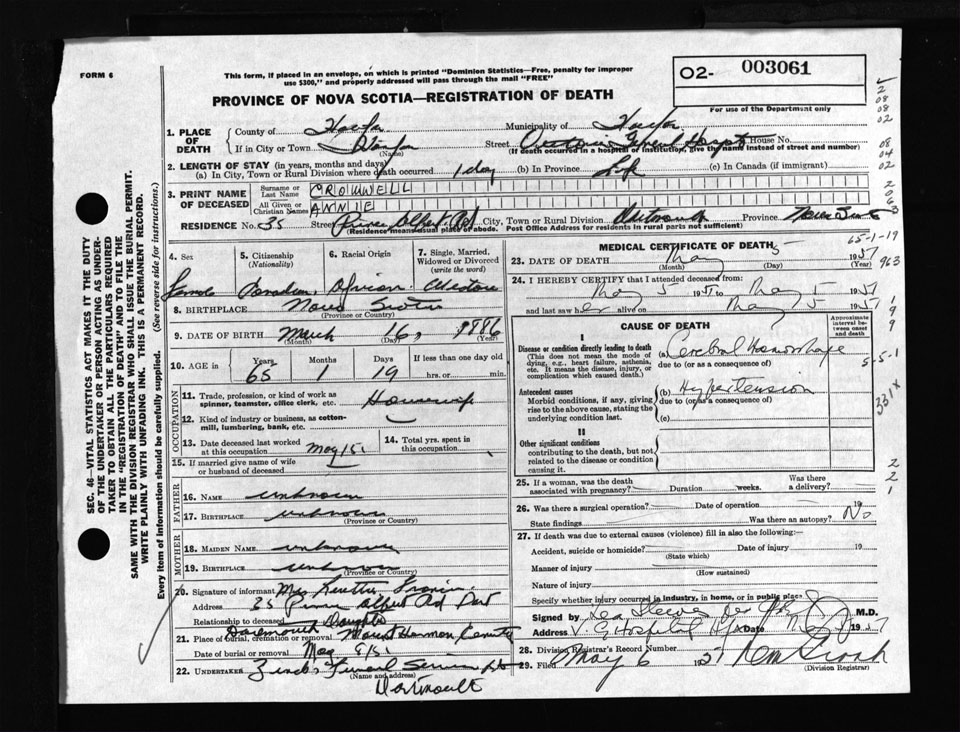 FORM 6
This form, if placed in an envelope, on which is printed "Dominion Statistics—Free, penalty for improper
use $300," and properly addressed will pass through the mail "FREE"
O2- 003061
For use of the Department only
PROVINCE OF NOVA SCOTIA—REGISTRATION OF DEATH
1. PLACE OF DEATH
County of Halifax Municipality of Halifax
If in City or Town Halifax (Name) Street Victoria General Hospital House No.
(If death occurred in a hospital or institution, give the name instead of street and number)
2. LENGTH OF STAY (in years, months and days)
(a) In City, Town or Rural Division where death occurred 1 day (b) In Province Life (c) In Canada (if immigrant)
3. PRINT NAME OF DECEASED
Surname or Last Name CROMWELL
All Given or Christian Names ANNIE
RESIDENCE No. 35 Street Prince Albert Rd City, Town or Rural Division Dartmouth Province Nova Scotia
(Residence means usual place of abode. Post Office Address for residents in rural parts not sufficient)
4. Sex Female
5. Citizenship (Nationality) Canadian
6. Racial Origin African
7. Single, Married, Widowed or Divorced (write the word)
8. BIRTHPLACE Nova Scotia
(Province or Country)
9. DATE OF BIRTH March 16, 1886
(Month) (Day) (Year)
10. AGE in Years 65 Months 1 Days 19 If less than one day old
hrs. or min.
OCCUPATION
11. Trade, profession, or kind of work as spinner, teamster, office clerk, etc. Housewife
12. Kind of industry or business, as cotton-mill, lumbering, bank, etc.
13. Date deceased last worked at this occupation May/51
14. Total yrs. spent in this occupation
15. If married give name of wife or husband of deceased
FATHER
16. NAME unknown
17. BIRTHPLACE unknown
(Province or Country)
MOTHER
18. MAIDEN NAME unknown
19. BIRTHPLACE unknown
(Province or Country)
20. Signature of informant Mrs
Address 35 Prince Albert Rd Dart
Relationship to deceased Daughter
21. Place of burial, cremation or removal Dartmouth Mount Hermon Cemetery
Date of burial or removal May 8/51
22. UNDERTAKER Zinck's Funeral Service
(Name and address)
Dartmouth
MEDICAL CERTIFICATE OF DEATH
23. DATE OF DEATH May 5 1951
(Month) (Day) (Year)
24. I HEREBY CERTIFY that I attended deceased from:
May 5 1951 to May 5 1951
and last saw her alive on May 5 1951
CAUSE OF DEATH
Approximate interval between onset and death
I
Disease or condition directly leading to death
(This does not mean the mode of dying, e.g., heart failure, asthenia, etc. It means the disease, injury, or complication which caused death.)
(a) Cerebral Hemorrhage
due to (or as a consequence of)
Antecedent causes
Morbid conditions, if any, giving rise to the above cause, stating the underlying condition last.
(b) Hypertension
due to (or as a consequence of)
(c)
II
Other significant conditions
contributing to the death, but not related to the disease or condition causing it.
25. If a woman, was the death associated with pregnancy? Duration weeks. Was there a delivery?
26. Was there a surgical operation? Date of operation 19
State findings Was there an autopsy? No
27. If death was due to external causes (violence) fill in also the following:—
Accident, suicide or homicide? Date of injury 19
(State which)
Manner of injury
(How sustained)
Nature of injury
Specify whether injury occurred in industry, in home, or in public place
Signed by M.D.
Address V. G. Hospital Hfx Date May 7 1951
28. Division Registrar's Record Number
29. Filed May 6 1951
(Division Registrar)
SEC. 46—VITAL STATISTICS ACT MAKES IT THE DUTY
OF THE UNDERTAKER OR PERSON ACTING AS UNDER-
TAKER TO OBTAIN ALL THE PARTICULARS REQUIRED
IN THE "REGISTRATION OF DEATH" AND TO FILE THE
SAME WITH THE DIVISION REGISTRAR WHO SHALL ISSUE THE BURIAL PERMIT.
WRITE PLAINLY WITH UNFADING INK. THIS IS A PERMANENT RECORD.
Every item of information should be carefully supplied. (See reverse side for instructions.)
2
08
08
02
08
04
02
2
0
63
65-1-19
963
1
9
9
5-5-1
331X
2
2
1